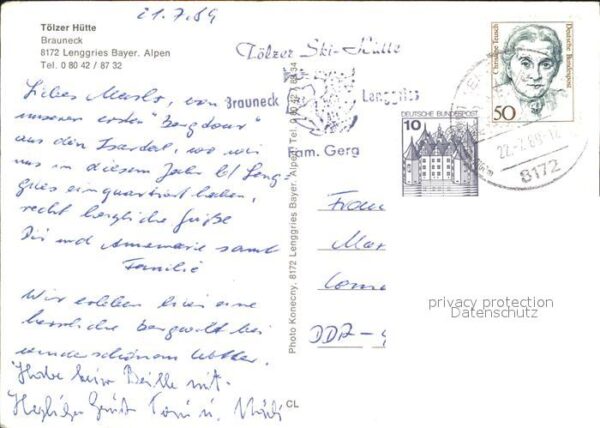 21.7.89
Tölzer Hütte
Brauneck
8172 Lenggries Bayer. Alpen
Tel. 0 80 42 / 87 32
Tölzer Ski-Hütte
Brauneck Lenggries
am. Gerg
Christine Teusch
Deutsche Bundespost
50
DEUTSCHE BUNDESPOST
10
22.-7.89-12
8172
Liebes, von
unserer ersten "Bergtour"
aus dem Isartal, wo wir
uns in diesem Jahr bei Leng-
gries einquartiert haben,
recht herzliche Grüße
Dir und Annemarie samt
Familie
Wir erleben hier eine
herrliche Bergwelt bei
wunderschönem Wetter.
Habe keine Brille mit.
Herzliche Grüße Toni u.
Frau
Mar
DDR-
Photo Konecny, 8172 Lenggries Bayer. Alpen Tel.
CL
privacy protection
Datenschutz